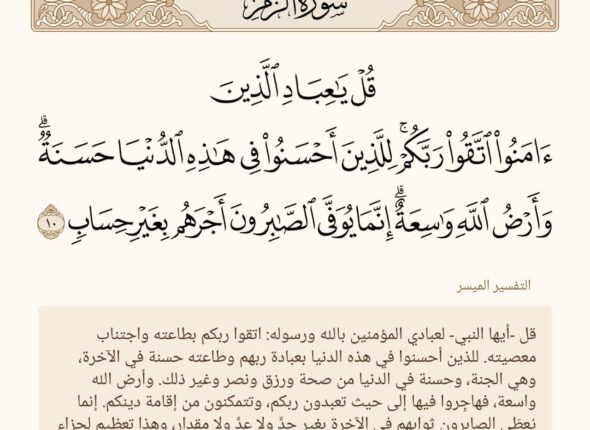 سورة الزمر
قُلْ يَٰعِبَادِ ٱلَّذِينَ
ءَامَنُوا۟ ٱتَّقُوا۟ رَبَّكُمْ ۚ لِلَّذِينَ أَحْسَنُوا۟ فِى هَٰذِهِ ٱلدُّنْيَا حَسَنَةٌ ۗ
وَأَرْضُ ٱللَّهِ وَٰسِعَةٌ ۗ إِنَّمَا يُوَفَّى ٱلصَّٰبِرُونَ أَجْرَهُم بِغَيْرِ حِسَابٍ ١٠
التفسير الميسر
قل -أيها النبي- لعبادي المؤمنين بالله ورسوله: اتقوا ربكم بطاعته واجتناب
معصيته. للذين أحسنوا في هذه الدنيا بعبادة ربهم وطاعته حسنة في الآخرة،
وهي الجنة، وحسنة في الدنيا من صحة ورزق ونصر وغير ذلك. وأرض الله
واسعة، فهاجِروا فيها إلى حيث تعبدون ربكم، وتتمكنون من إقامة دينكم. إنما
يُعطَى الصابرون ثوابهم في الآخرة بغير حدّ ولا عدّ ولا مقدار، وهذا تعظيم لجزاء